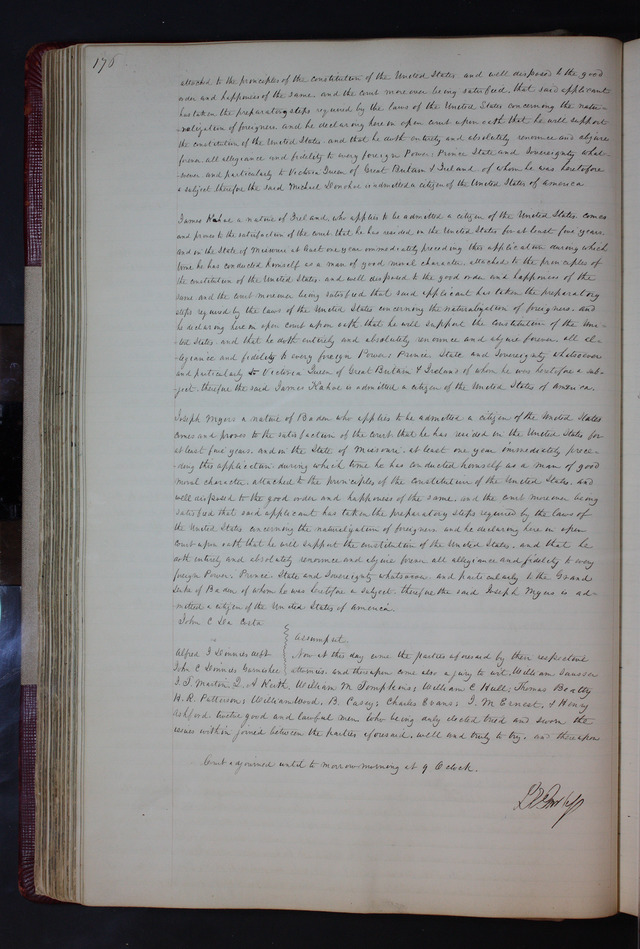 176
attached to the principles of the constitution of the United States and well disposed to the good
order and happiness of the same. and the court moreover being satisfied, that said applicant
has taken the preparatory steps required by the laws of the United States concerning the natu-
-ralization of foreigners. and he declaring here in open court upon oath that he will support
the constitution of the United States. and that he doth entirely and absolutely renounce and abjure
forever all allegiance and fidelity to every foreign Power, Prince State and Sovereignty what-
soever and particularly to Victoria Queen of Great Britain & Ireland of whom he was heretofore
a subject therefore the said Michael Donohue is admitted a citizen of the United States of America
James Kahue a native of Ireland, who applies to be admitted a citizen of the United States. comes
and proves to the satisfaction of the court that he has resided in the United States for at least five years
and in the State of Missouri at least one year immediately preceding this application during which
time he has conducted himself as a man of good moral character, attached to the principles of
the constitution of the United States. and well disposed to the good order and happiness of the
same and the court moreover being satisfied that said applicant has taken the preparatory
steps required by the laws of the United States concerning the naturalization of foreigners. and
he declaring here in open court upon oath that he will support the Constitution of the Uni-
ted States. and that he doth entirely and absolutely renounce and abjure forever all al-
legiance and fidelity to every foreign Power, Prince, State and Sovereignty whatsoever
and particularly to Victoria Queen of Great Britain & Ireland of whom he was heretofore a sub-
ject. therefore the said James Kahue is admitted a citizen of the United States of America.
Joseph Myers a native of Baden who applies to be admitted a citizen of the United States
comes and proves to the satisfaction of the court that he has resided in the United States for
at least five years. and in the State of Missouri at least one year immediately prece-
ding this application. during which time he has conducted himself as a man of good
moral character. attached to the principles of the constitution of the United States. and
well disposed to the good order and happiness of the same, and the court moreover being
satisfied that said applicant has taken the preparatory steps required by the laws of
the United States concerning the naturalization of foreigners. and he declaring here in open
court upon oath that he will support the constitution of the United States, and that he
doth entirely and absolutely renounce and abjure forever all allegiance and fidelity to every
foreign Power, Prince, State and Sovereignty whatsoever. and particularly to the Grand
Duke of Baden of whom he was heretofore a subject. therefore the said Joseph Myers is ad-
mitted a citizen of the United States of America.
John C
Assumpsit
Alfred J deft
Now at this day come the parties aforesaid by their respective
John C Garnishee
attornies. and thereupon come also a jury to wit, William
J. T. Martin, A Keith, William M Tompkins; William C Hull; Thomas Beatty
H. R. Patterson; William Wood, B. Casey; Charles Evans; J. M. Ernest, & Henry
Ashford twelve good and lawful men who being duly elected tried and sworn the
issues within joined between the parties aforesaid. well and truly to try. and thereupon
Court adjourned until to morrow morning at 9 O'clock.